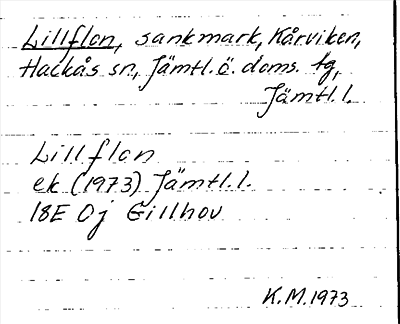 Lillflon, sankmark, Kårviken,
Hackås sn, Jämtl.ö. doms. tg,
Jämtl.l.
Lillflon
ek (1973) Jämtl.l.
18E 0j Gillhov
K.M.1973